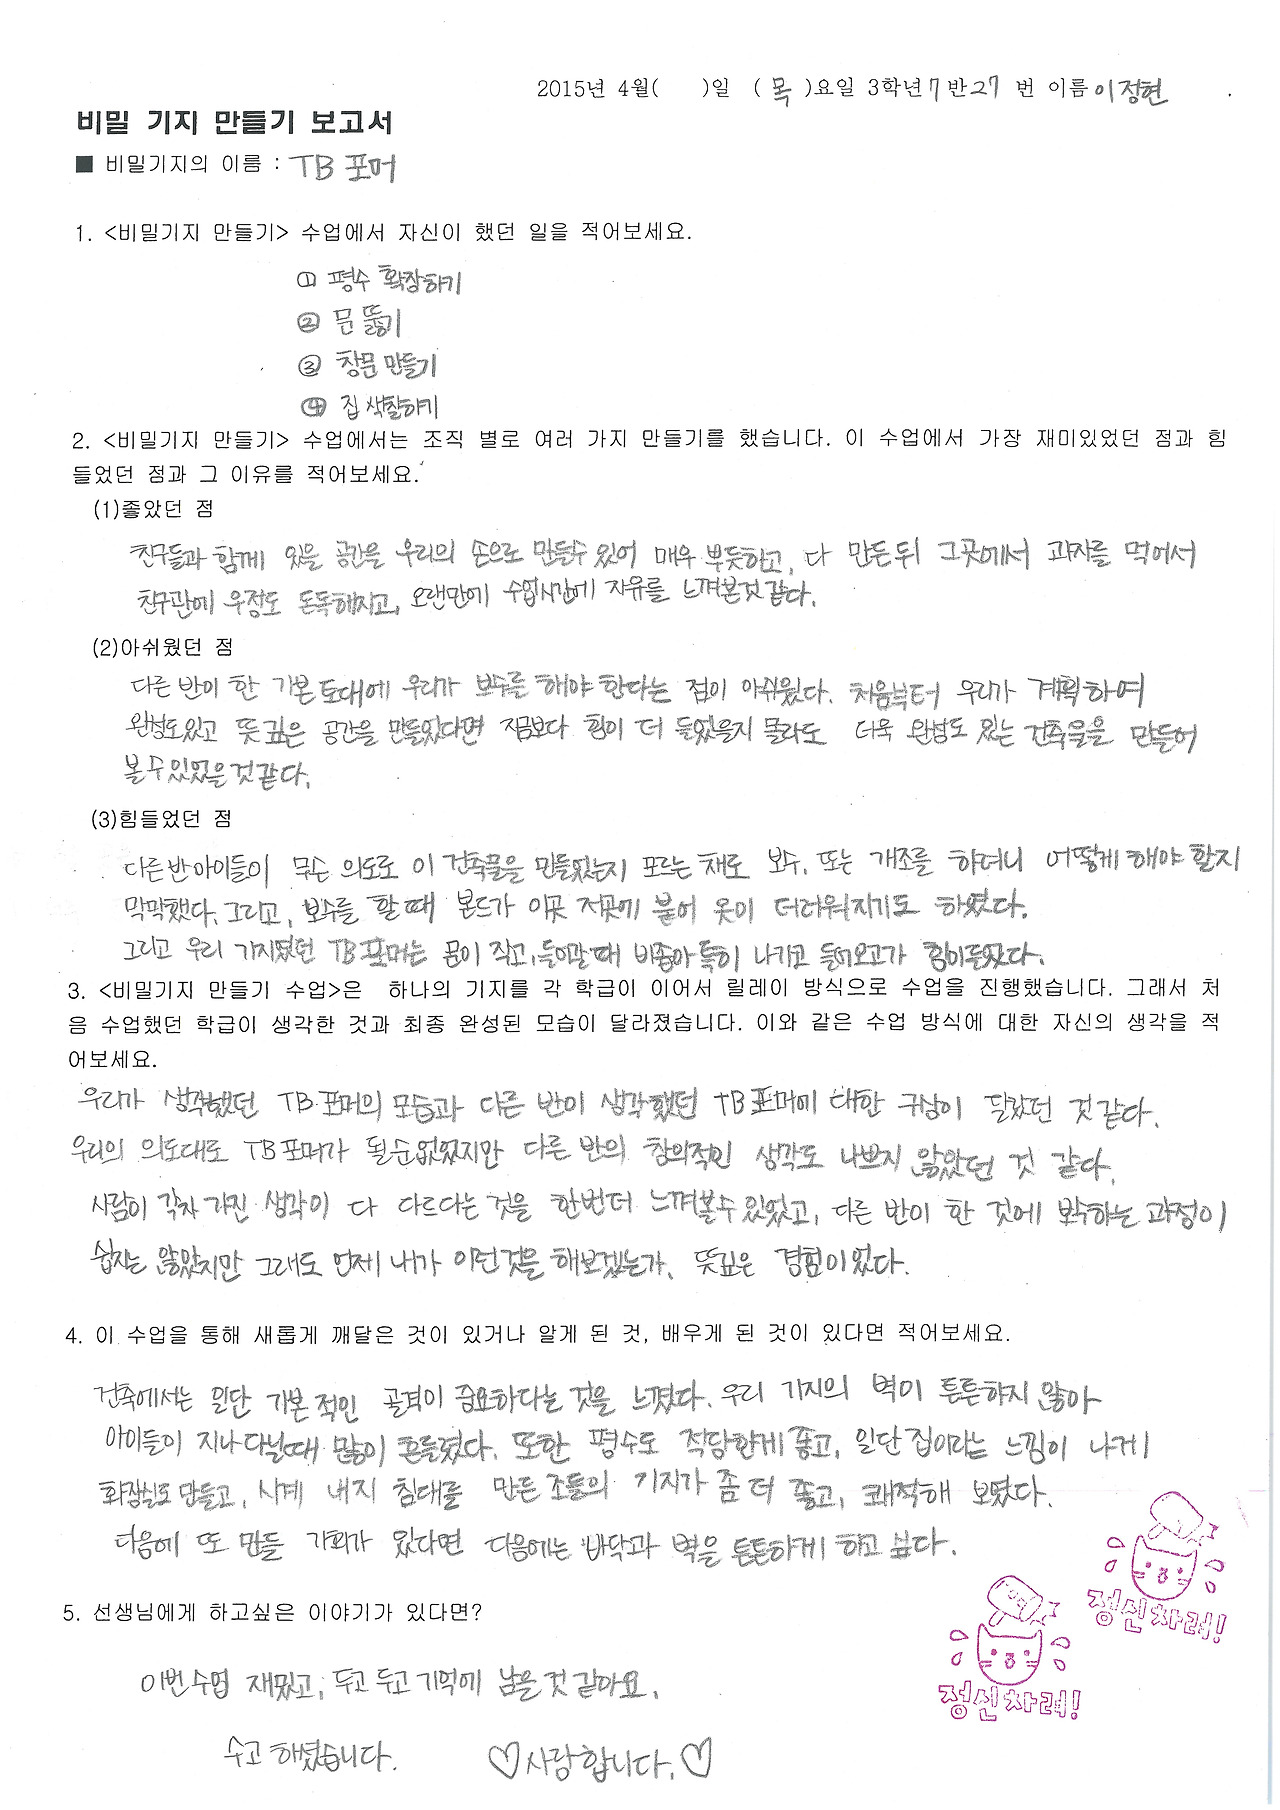 2015년 4월(    )일 ( 목 )요일 3학년 7 반 27 번 이름 이정현
비밀 기지 만들기 보고서
■ 비밀기지의 이름 : TB 포머
1. <비밀기지 만들기> 수업에서 자신이 했던 일을 적어보세요.
① 평수 확장하기
② 문 뚫기
③ 창문 만들기
④ 집 색칠하기
2. <비밀기지 만들기> 수업에서는 조직 별로 여러 가지 만들기를 했습니다. 이 수업에서 가장 재미있었던 점과 힘
들었던 점과 그 이유를 적어보세요.
(1)좋았던 점
친구들과 함께 있을 공간을 우리의 손으로 만들수 있어 매우 뿌듯하고, 다 만든뒤 그곳에서 과자를 먹어서
친구관에 우정도 돈독해지고, 오랜만에 수업시간에 자유를 느껴본것 같다.
(2)아쉬웠던 점
다른 반이 한 기본 토대에 우리가 보수를 해야 한다는 점이 아쉬웠다. 처음부터 우리가 계획하여
완성도있고 뜻깊은 공간을 만들었다면 지금보다 힘이 더 들었을지 몰라도 더욱 완성도 있는 건축물을 만들어
볼수있었을것같다.
(3)힘들었던 점
다른반아이들이 무슨 의도로 이 건축물을 만들었는지 모르는 채로 보수, 또는 개조를 하려니 어떻게 해야 할지
막막했다. 그리고, 보수를 할 때 본드가 이곳 저곳에 붙어 옷이 더러워지기도 하였다.
그리고 우리 기지였던 TB포머는 문이 작고, 들어갈때 비좁아 특히 나가고 들어오고가 힘이들었다.
3. <비밀기지 만들기 수업>은 하나의 기지를 각 학급이 이어서 릴레이 방식으로 수업을 진행했습니다. 그래서 처
음 수업했던 학급이 생각한 것과 최종 완성된 모습이 달라졌습니다. 이와 같은 수업 방식에 대한 자신의 생각을 적
어보세요.
우리가 생각했던 TB 포머의 모습과 다른 반이 생각했던 TB포머에 대한 구상이 달랐던 것 같다.
우리의 의도대로 TB포머가 될순없었지만 다른 반의 창의적인 생각도 나쁘지 않았던 것 같다.
사람이 각자 가진 생각이 다 다르다는 것을 한번더 느껴볼수 있었고, 다른 반이 한 것에 보수하는 과정이
쉽지는 않았지만 그래도 언제 내가 이런것을 해보겠는가. 뜻깊은 경험이었다.
4. 이 수업을 통해 새롭게 깨달은 것이 있거나 알게 된 것, 배우게 된 것이 있다면 적어보세요.
건축에서는 일단 기본적인 골격이 중요하다는 것을 느꼈다. 우리 기지의 벽이 튼튼하지 않아
아이들이 지나다닐때 많이 흔들렸다. 또한 평수도 적당한게 좋고, 일단 집이라는 느낌이 나게
화장실도 만들고, 시계 내지 침대를 만든 조들의 기지가 좀 더 좋고, 쾌적해 보였다.
다음에 또 만들 기회가 있다면 다음에는 바닥과 벽을 튼튼하게 하고 싶다.
5. 선생님에게 하고싶은 이야기가 있다면?
이번수업 재밌고, 두고 두고 기억에 남을것 같아요.
수고 하셨습니다. ♡사랑합니다.♡
정신차려!
정신차려!